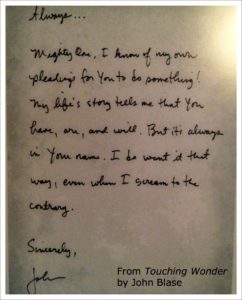 Always...
Mighty One, I know of my own
pleadings for You to do something!
My life's story tells me that You
have, are, and will. But it's always
in Your name. I do want it that
way, even when I scream to the
contrary.
Sincerely,
John
From Touching Wonder
by John Blase